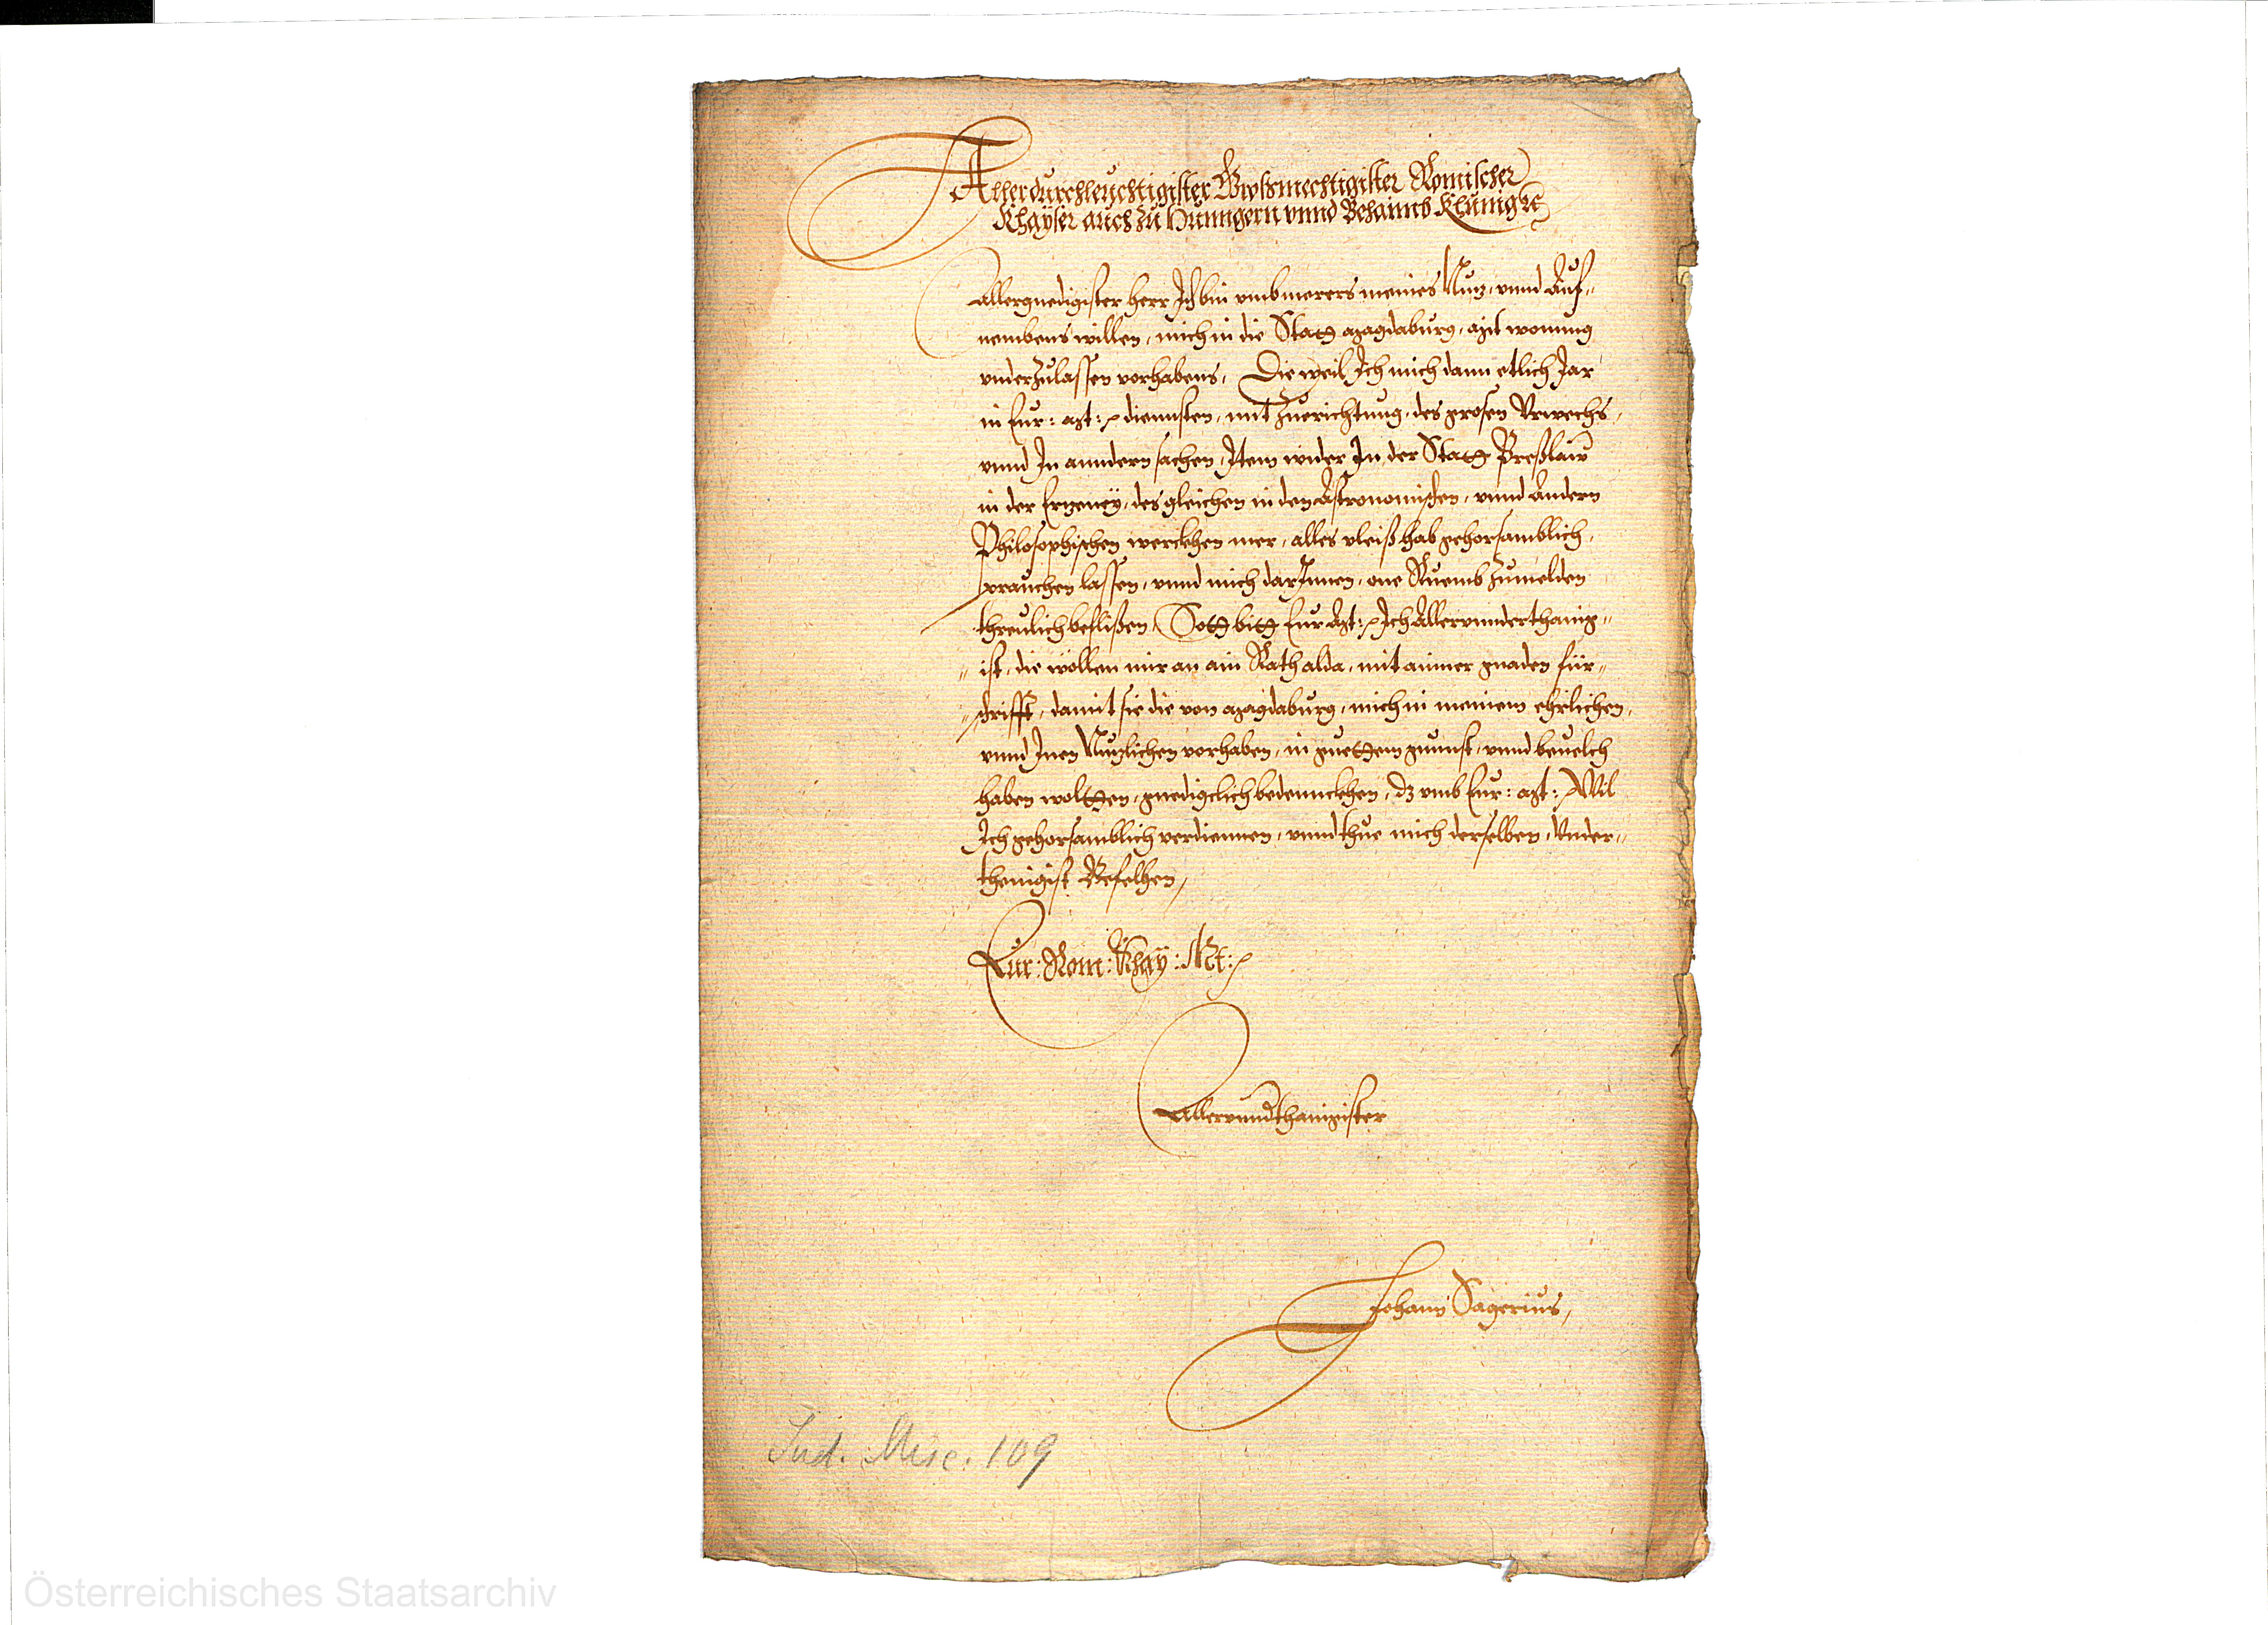 Allerdurchleuchtigister Grosmechtigister Romischer
Khayser auch zu Hunngern vnnd Behaimb Khunig etc.
Allergnedigister herr Ich bin vmb merers meines Nuz, vnnd Auf„
nembens willen, mich in die Statt Magdaburg, mit wonung
niderzulassen vorhabens, Die weil Ich mich dann etlich Jar
in Eur: Mt: diennsten, mit Zuerichtung, des grosen Vrwerchs,
vnnd In anndern sachen, Item wider In der Statt Breßlaw
in der Erzeney, des gleichen in den Astronomischen, vnnd Andern
Philosophischen werckhen mer, alles vleiß hab gehorsamblich,
prauchen lassen, vnnd mich darInnen, one Ruemb Zumelden
threulich beflißen, Sott bitt Eur Mt: Ich Allervnnderthanig„
„ist, die wöllen mir an ain Rath alda, mit ainer gnaden für„
„schrifft, damit sie die von Magdaburg, mich in meinem ehrlichen,
vnnd Inen Nuzlichen vorhaben, in guettem gunnst, vnnd beuelch
haben woltten, gnedigclich bedennckhen, dz vmb Eur: Mt: Wil
Ich gehorsamblich verdiennen, vnnd thue mich derselben, Vnder„
thenigist Befelhen,
Eur: Rom: Khay: Mt:
Allervnndthanigister
Johann Sagerius,
Jud. Misc. 109
Österreichisches Staatsarchiv